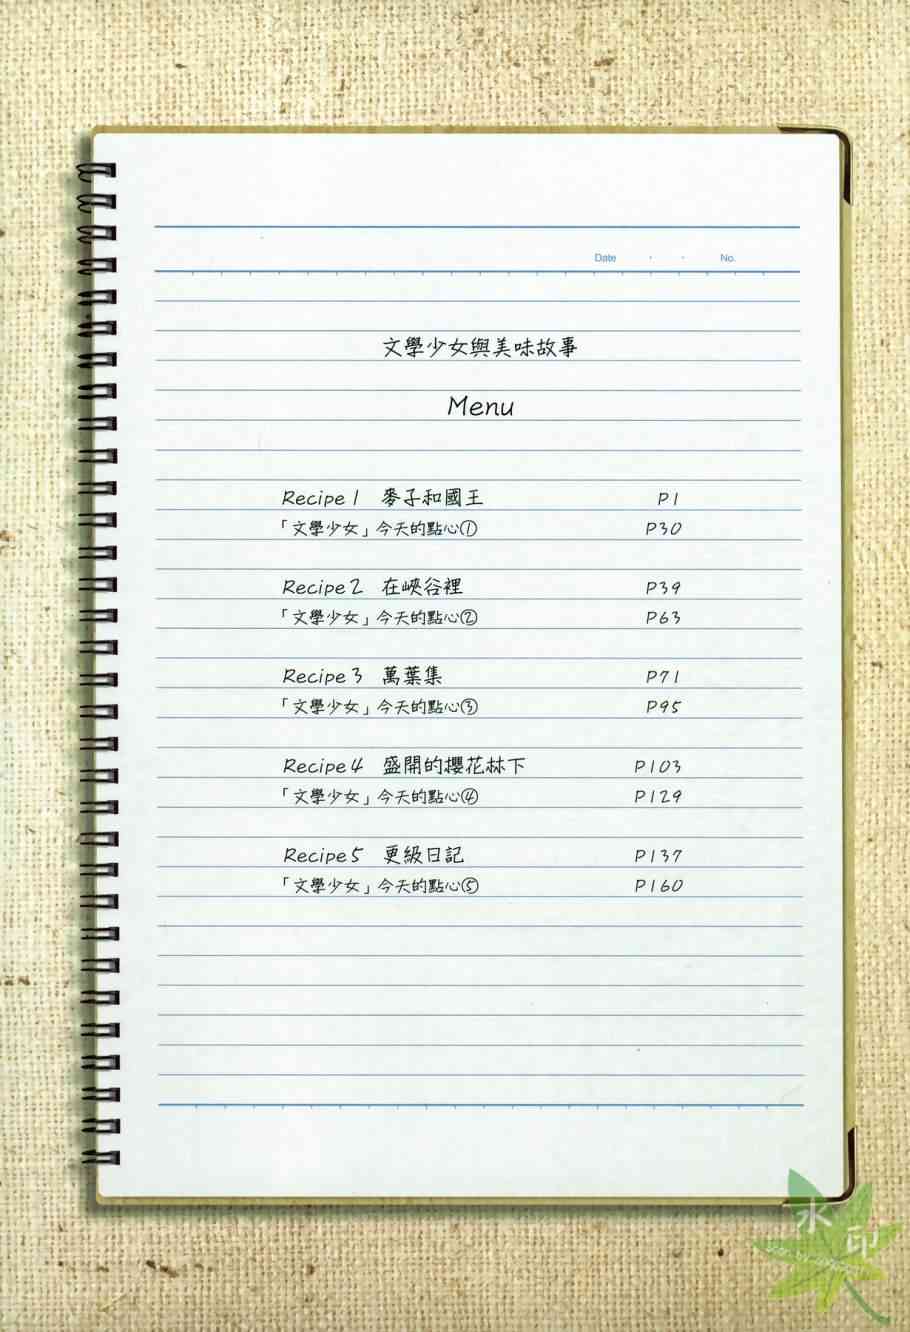 Date · · No.
文學少女與美味故事
Menu
Recipe 1 麥子和國王 P1
「文學少女」今天的點心① P30
Recipe 2 在峽谷裡 P39
「文學少女」今天的點心② P63
Recipe 3 萬葉集 P71
「文學少女」今天的點心③ P95
Recipe 4 盛開的櫻花林下 P103
「文學少女」今天的點心④ P129
Recipe 5 更級日記 P137
「文學少女」今天的點心⑤ P160
水印